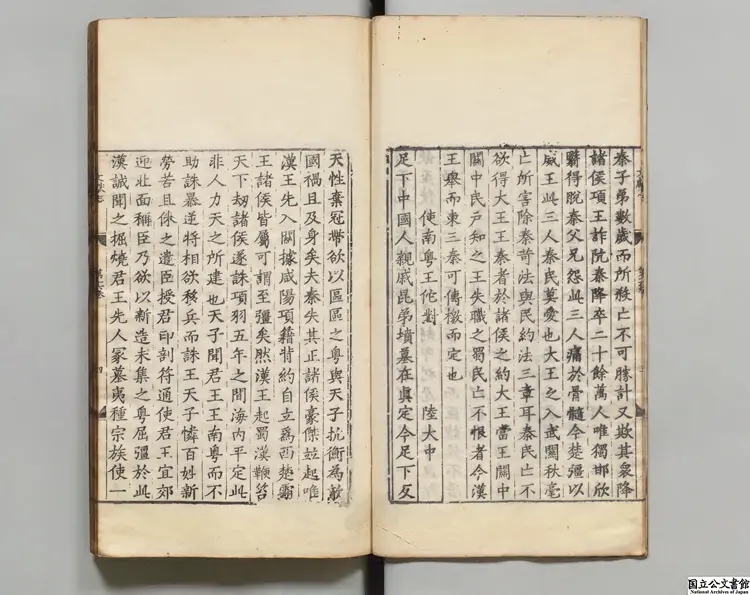 秦子弟數歲而所殺亡不可勝計又欺其衆降
諸侯項王詐阬秦降卒二十餘萬人唯獨邯欣
翳得脫秦父兄怨此三人痛於骨髓今楚彊以
威王此三人秦民莫愛也大王之入武關秋毫
亡所害除秦苛法與民約法三章耳秦民亡不
欲得大王王秦者於諸侯之約大王當王關中
關中民戶知之王失職之蜀民亡不恨者今漢
王舉而東三秦可傳檄而定也
使南粤王佗對 陸大中
足下中國人親戚昆弟墳墓在真定今足下反
天性棄冠帶欲以區區之粤與天子抗衡為敵
國禍且及身矣夫秦失其正諸侯豪傑並起唯
漢王先入關據咸陽項籍背約自立爲西楚霸
王諸侯皆屬可謂至彊矣然漢王起蜀漢鞭笞
天下刼諸侯遂誅項羽五年之間海內平定此
非人力天之所建也天子聞君王王南粤而不
助誅暴逆將相欲移兵而誅王天子憐百姓新
勞苦且休之遣臣授君印剖符通使君王宜郊
迎北面稱臣乃欲以新造未集之粤屈彊於此
漢誠聞之掘燒君王先人冢墓夷種宗族使一
国立公文書館
National Archives of Japan